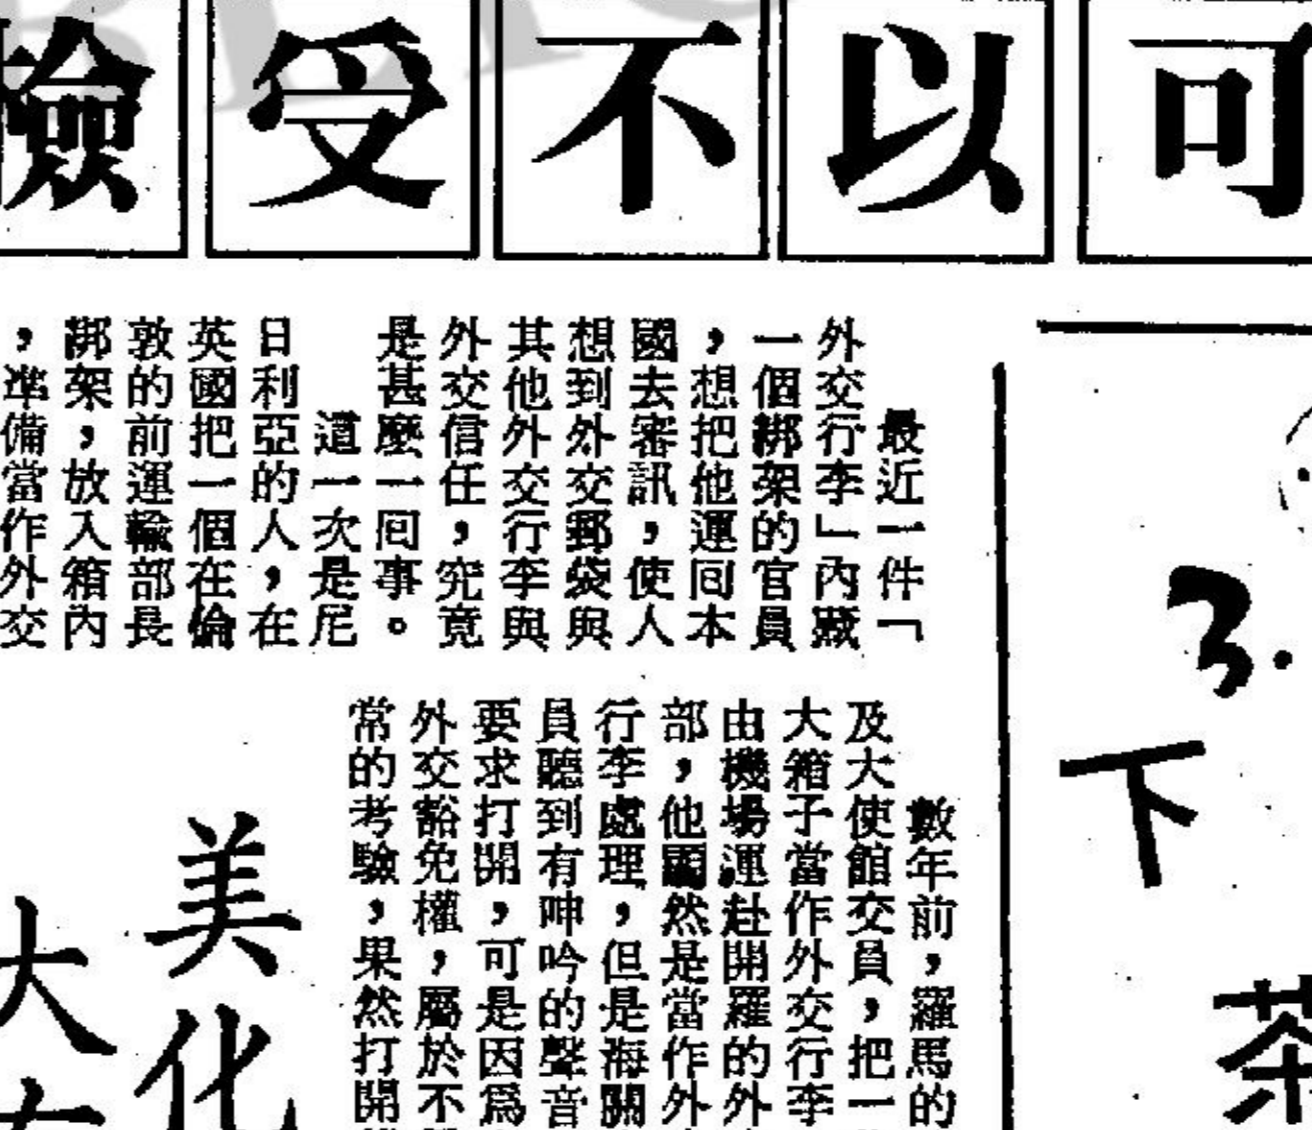 可以不受檢
最近一件「
外交行李」內藏
一個綁架的官員
，想把他運回本
國去審訊，使人
想到外交郵袋與
其他外交行李與
外交信任，究竟
是甚麼一回事。
這一次是尼
日利亞的人，在
英國把一個在倫
敦的前運輸部長
綁架，放入箱內
，準備當作外交
數年前，羅馬的
及大使館交員，把一
大箱子當作外交行李
由機場運赴開羅的外
部，他固然是當作外
行李處理，但是海關
員聽到有呻吟的聲音
要求打開，可是因為
外交豁免權，屬於不
常的考驗，果然打開
3.
下
茶
美化
大